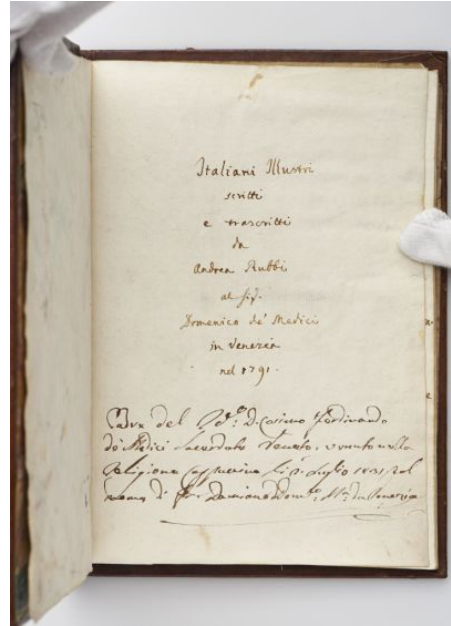 Italiani Illustri
scritti
e trascritti
da
Andrea Rubbi
al Sig.
Domenico de' Medici
in Venezia
nel 1791.
del D. Cosimo Ferdinando
de' Medici Sacerdote Veneto, venuto nella
Religione Cappuccina li Luglio col
nome di Fr. Damiano da Venezia